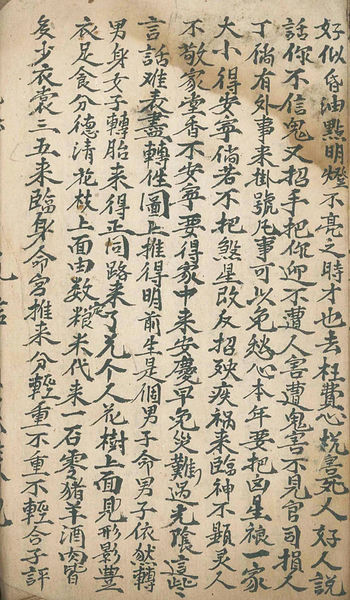 好似昏油點明燈不亮之時才也去枉費心說害死人好人說
話你不信鬼又招手把你迎不遭人害遭鬼害不見官司損人
丁倘有外事来掛號凡事可以免愁心本年要把凶星禳一家
大小得安寧倘若不把煞星改反招殃疾禍来臨神不顯灵人
不敬家堂香不安寧要得家中来安慶早免災難過光陰這些
言話难表盡轉性圖上推得明前生是個男子命男子依旧轉
男身女子轉胎来得正同路来了几个人花樹上面見形影豊
衣足食分德清花枝上面由数定粮米代来一石零猪羊酒肉皆
多少衣裳三五来臨身命宮推来分輕重不重不輕合子評